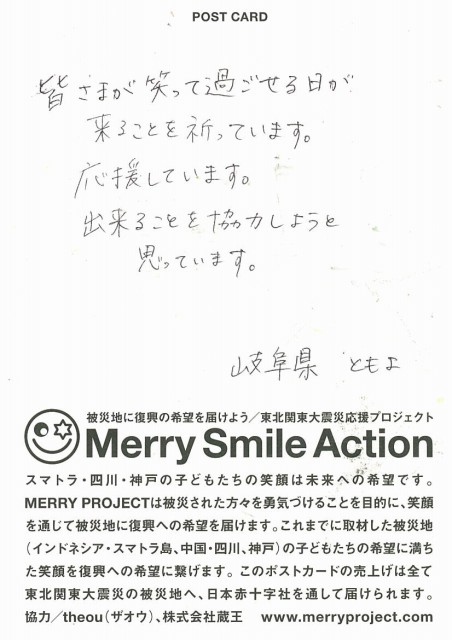 POST CARD
皆さまが笑って過ごせる日が
来ることを祈っています。
応援しています。
出来ることを協力しようと
思っています。
岐阜県 ともよ
被災地に復興の希望を届けよう／東北関東大震災応援プロジェクト
Merry Smile Action
スマトラ・四川・神戸の子どもたちの笑顔は未来への希望です。
MERRY PROJECTは被災された方々を勇気づけることを目的に、笑顔
を通じて被災地に復興への希望を届けます。これまでに取材した被災地
（インドネシア・スマトラ島、中国・四川、神戸）の子どもたちの希望に満ち
た笑顔を復興への希望に繋げます。このポストカードの売上げは全て
東北関東大震災の被災地へ、日本赤十字社を通して届けられます。
協力／theou（ザオウ）、株式会社蔵王 www.merryproject.com